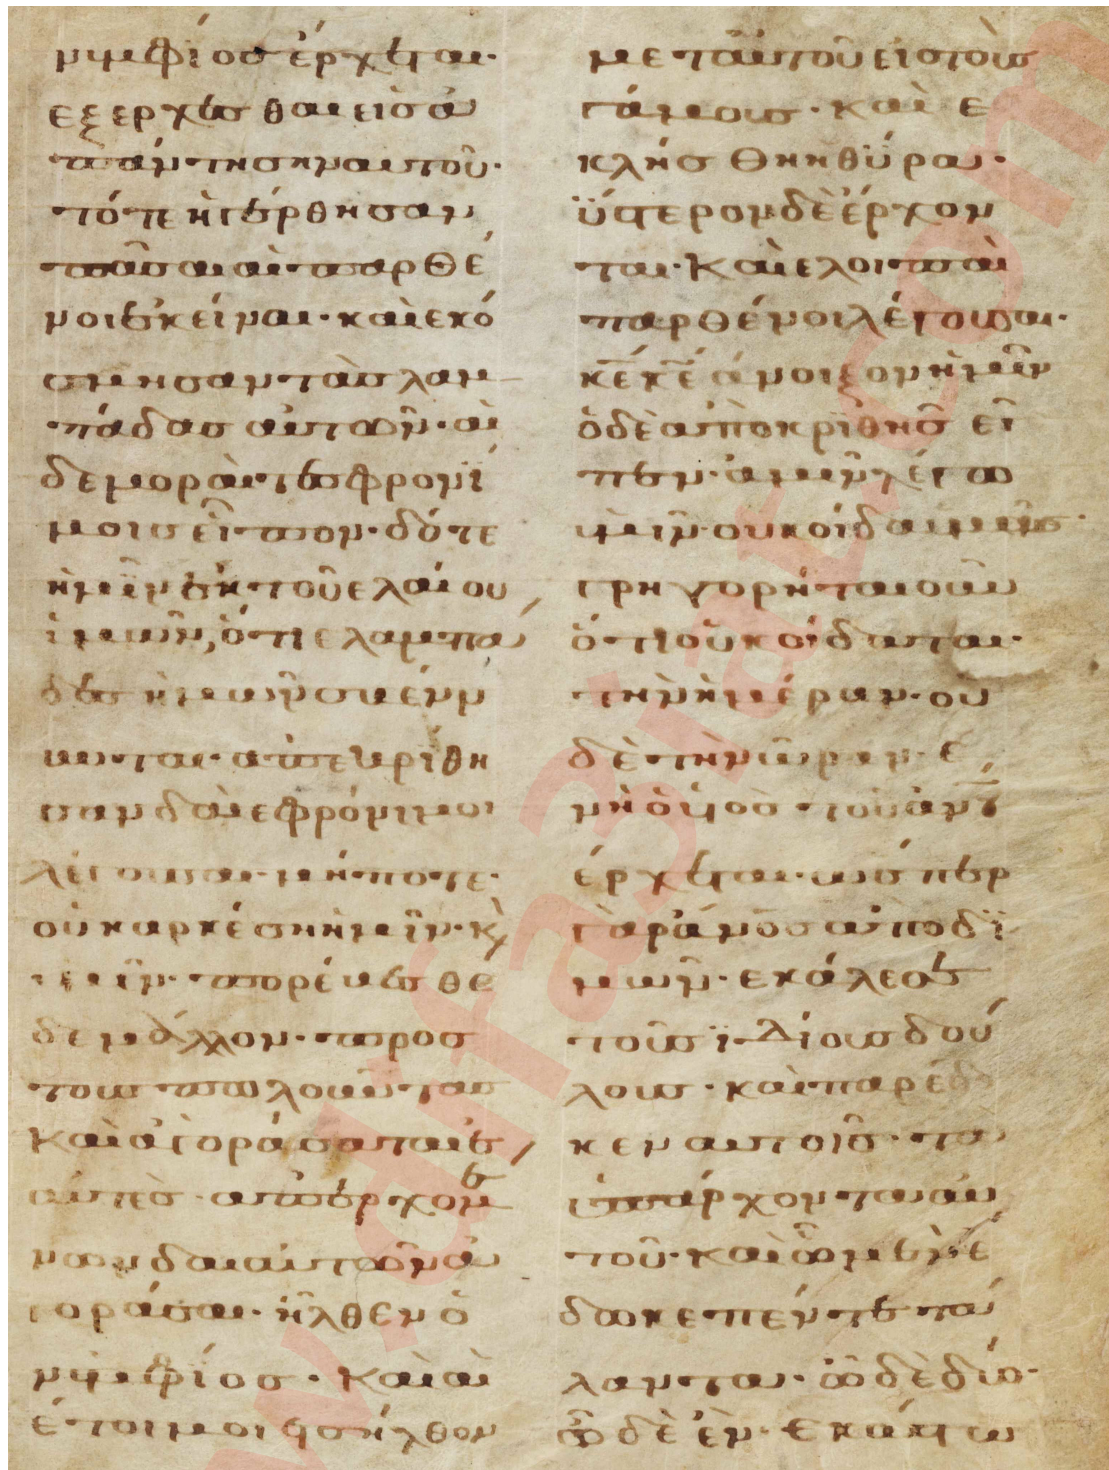 νυμφίος ἔρχεται·
εξερχεσθαι εἰσ ἀ
πάντησην αυτοῦ·
τότε ἠγέρθησαν
πᾶσαι αἱ παρθέ
νοι εκεῖναι· καὶ εκό
σμησαν τὰσ λαμ
πάδασ αυτῶν· αἱ
δε μοραὶ τεσ φρονί
μοισ εἶπον· δότε
ἡμῖν εκ τοῦ ελαίου
ἱμῶν, ὅτι ε λαμπά
δεσ ἡμῶν σβένν
υνται· απεκρίθη
σαν δαὶ ε φρόνιμοι
λέγουσαι· μήποτε·
οὐκ αρκέση ἡμῖν· κ̀
ἱμῖν· πορέυεσθε
δε μάλλον· προσ
τουσ πωλουντασ
καὶ ἀγοράσαται ε
αυτὲσ· απερχομε
νων δαι αὐτῶν ἀ
γοράσαι· ἦλθεν ὁ
νυμφίοσ· Καὶ αἱ
έτοιμοι εισήλθον
μετ αὐτοῦ εἰσ τοὺσ
γάμουσ· καὶ ε
κλήσθη η θύρα·
ὕστερον δὲ έρχον
ται· Καὶ ε λοιπαὶ
παρθένοι λέγουσαι·
κ̅ε̅ κ̅ε̅ ἄνοιξον ἡμῖν
ὁ δὲ αποκριθῆσ εἶ
πεν· ἀμῆν λέγω
ὑμῖν· ουκ οίδα ὑμᾶσ·
γρηγορήται οῦν
ὅτι οὐκ οίδαται·
τὴν ἡμέραν· ου
δὲ τὴν ῶραν· ε
ν ἡ ὁ ὑιοσ τοῦ ἀν̅ου̅
έρχεται· ωσπερ
γὰρ ἄνοσ αποδι
μῶν· εκάλεσε
τοῦσ ϊδίουσ δού
λουσ· καὶ παρέδο
κεν αυτοῖσ· τα
ὑπάρχοντα αυ
τοῦ· καὶ ῶ μὲν έ
δωκε πέντε τά
λαντα· ῶ δὲ δύο·
ῶ δὲ ἑν· Εκάστω